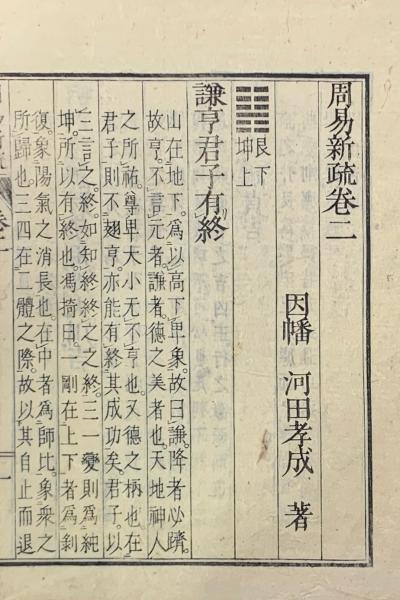 周易新疏卷二
因幡 河田孝成 著
艮下
坤上
謙亨君子有終
山在地下。爲以高下卑象。故曰謙。降者必躋。
故亨。不言元者。謙者。德之美者也。天地神人
之所祐。尊卑大小无不亨也。又德之柄也。在
君子則不翅亨。亦能有終其成功矣。君子。以
三言之。終。如知終終之之終。三一變則爲純
坤。所以有終也。馮掎曰。一剛在上下者爲剝
復。象陽氣之消長也。在中者爲師比。象衆之
所歸也。三四在二體之際。故以其自止而退